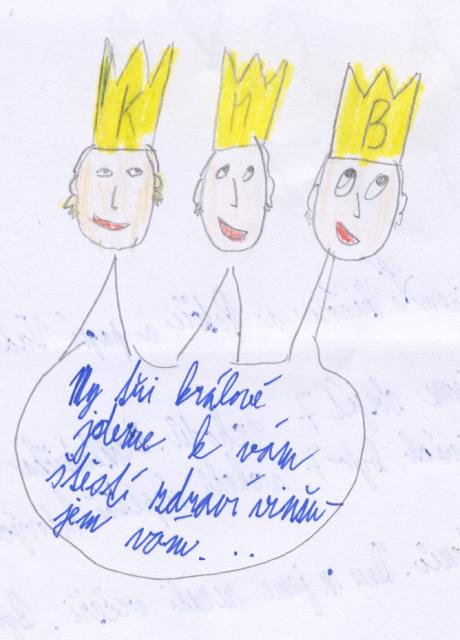 K M B
My tři králové
jdeme k vám
štěstí zdraví vinšu-
jem vám...